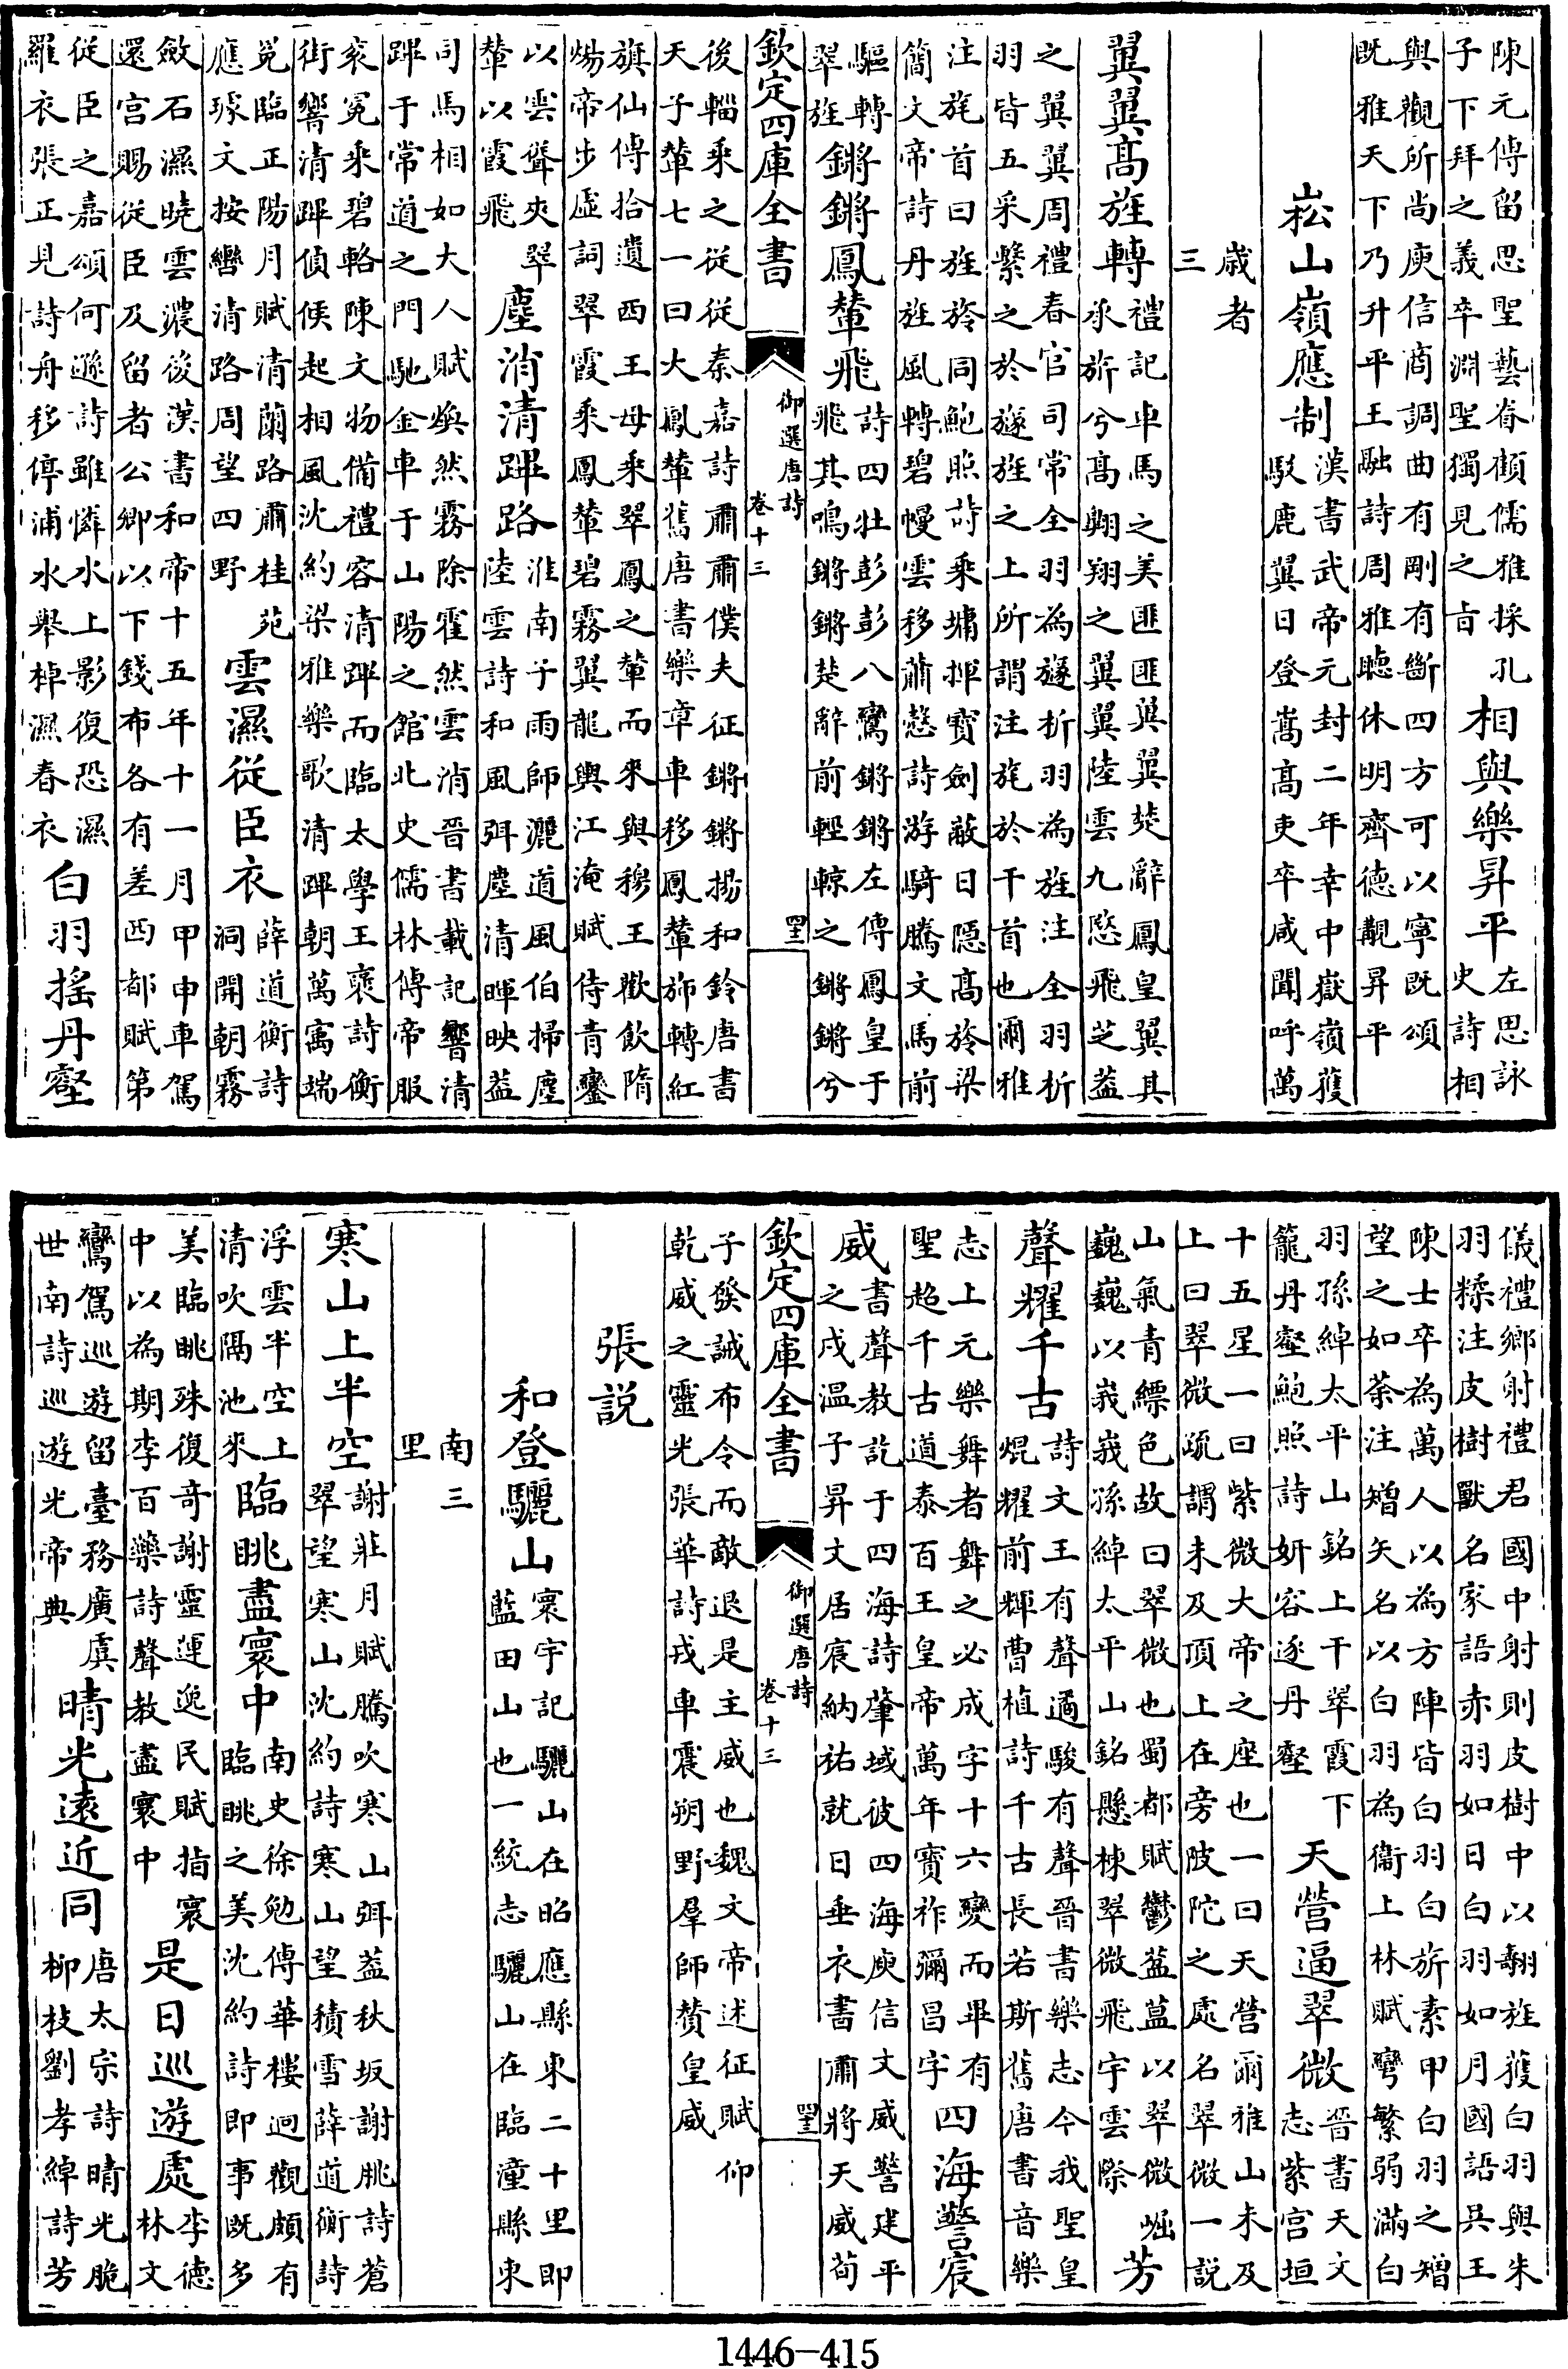 陳元傅留思聖藝眷頋儒雅採孔
子下拜之義卒淵聖獨見之旨
相與樂昇平
左思詠
史詩相
與觀所尚庾信商調曲有剛有斷四方可以寧既頌
既雅天下乃升平王融詩周雅聴休明齊徳覯昇平
崧山嶺應制
漢書武帝元封二年幸中嶽嶺獲
駁鹿翼日登嵩髙吏卒咸聞呼萬
歲者
三
翼翼髙旌轉
禮記車馬之美匪匪翼翼楚辭鳳皇翼其
承旂兮髙翺翔之翼翼陸雲九愍飛芝葢
之翼翼周禮春官司常全羽為旞析羽為旌注全羽析
羽皆五采繫之於旞旌之上所謂注旄於干首也爾雅
注旄首曰旌旍同鮑照詩乗墉揮寳劍蔽日隠髙旍梁
簡文帝詩丹旌風轉碧幔雲移蕭慤詩游騎騰文馬前
驅轉
翠旌
鏘鏘鳳輦飛
詩四牡彭彭八鸞鏘鏘左傳鳳皇于
飛其鳴鏘鏘楚辭前輕輬之鏘鏘兮
欽定四庫全書
御選唐詩
卷十三
後輜乘之從從秦嘉詩肅肅僕夫征鏘鏘揚和鈴唐書
天子輦七一曰大鳳輦舊唐書樂章車移鳳輦斾轉紅
旗仙傳拾遺西王母乗翠鳳之輦而來與穆王歡飲隋
煬帝步虚詞翠霞乘鳳輦碧霧翼龍輿江淹賦侍青鑾
以雲聳夾翠
輦以霞飛
塵消清蹕路
淮南子雨師灑道風伯掃塵
陸雲詩和風弭塵清暉映葢
司馬相如大人賦煥然霧除霍然雲消晉書載記響清
蹕于常道之門馳金車于山陽之館北史儒林傳帝服
袞冕乘碧輅陳文物備禮容清蹕而臨太學王襃詩衡
街響清蹕偵候起相風沈約梁雅樂歌清蹕朝萬㝢端
冕臨正陽月賦清蘭路肅桂苑
應瑑文按轡清路周望四野
雲濕從臣衣
薛道衡詩
洞開朝霧
斂石濕曉雲濃後漢書和帝十五年十一月甲申車駕
還宫賜從臣及留者公卿以下錢布各有差西都賦第
從臣之嘉頌何遜詩雖憐水上影復恐濕
羅衣張正見詩舟移停浦水舉棹濕春衣
白羽揺丹壑
儀禮鄉射禮君國中射則皮樹中以翿旌獲白羽與朱
羽糅注皮樹獸名家語赤羽如日白羽如月國語吳王
陳士卒為萬人以為方陣皆白羽白旂素甲白羽之矰
望之如荼注矰矢名以白羽為衞上林賦彎繁弱滿白
羽孫綽太平山銘上干翠霞下
籠丹壑鮑照詩妍容逐丹壑
天營逼翠微
晉書天文
志紫宫垣
十五星一曰紫微大帝之座也一曰天營爾雅山未及
上曰翠微疏謂未及頂上在旁陂陀之處名翠微一說
山氣青縹色故曰翠微也蜀都賦鬱葢葢以翠微崛
巍巍以峩峩孫綽太平山銘懸棟翠微飛宇雲際
芳
聲耀千古
詩文王有聲遹駿有聲晉書樂志今我聖皇
焜耀前輝曹植詩千古長若斯舊唐書音樂
志上元樂舞者舞之必成字十六變而畢有
聖超千古道泰百王皇帝萬年寳祚彌昌字
四海警宸
威
書聲教訖于四海詩肇域彼四海庾信文威讋建平
之戍温子昇文居宸納祐就日垂衣書肅將天威荀
欽定四庫全書
御選唐詩
卷十三
子發誠布令而敵退是主威也魏文帝述征賦仰
乾威之靈光張華詩戎車震朔野羣師贊皇威
張説
和登驪山
寰宇記驪山在昭應縣東二十里即
藍田山也一統志驪山在臨潼縣東
南三
里
寒山上半空
謝莊月賦騰吹寒山弭葢秋坂謝朓詩蒼
翠望寒山沈約詩寒山望積雪薛道衡詩
浮雲半空上
清吹隔池來
臨眺盡寰中
南史徐勉傅華樓迥觀頗有
臨眺之美沈約詩即事既多
美臨眺殊復奇謝靈運逸民賦指寰
中以為期李百藥詩聲教盡寰中
是日巡遊處
李徳
林文
鸞駕巡遊留臺務廣虞
世南詩巡遊光帝典
晴光逺近同
唐太宗詩晴光脆
柳枝劉孝綽詩芳
1446–415